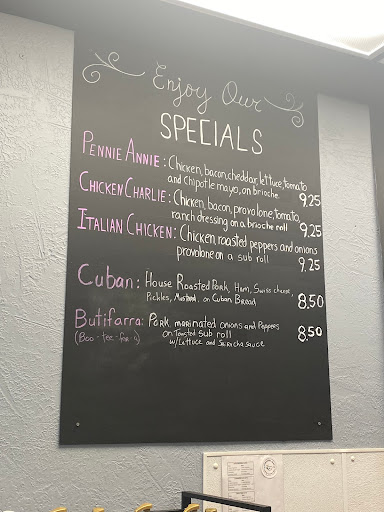 Enjoy Our
SPECIALS
PENNIE ANNIE: Chicken, bacon, cheddar, lettuce, tomato
and Chipotle mayo, on brioche 9.25
CHICKEN CHARLIE: Chicken, bacon, provolone, tomato,
ranch dressing on a brioche roll 9.25
ITALIAN CHICKEN: Chicken, roasted peppers and onions
provolone on a sub roll 9.25
Cuban: House Roasted Pork, Ham, Swiss cheese,
Pickles, Mustard. on Cuban Bread 8.50
Butifarra: Pork marinated onions and Peppers
(Boo-tee-far-a) on Toasted sub roll 8.50
w/Lettuce and Sriracha sauce